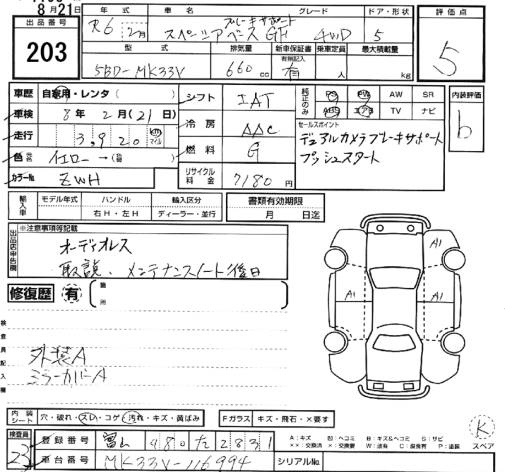 8月21日
出品番号
203
年式
R6 2月
車名
スペーシアベース GF
ブレーキサポート
グレード
4WD
ドア・形状
5
評価点
5
型式
5BD-MK33V
排気量
660cc
新車保証書
有無記入
有
乗車定員
人
最大積載量
kg
車歴
自家用・レンタ ( )
車検
8年2月(21日)
走行
3,920 km マイル
色
イエロー→( )
カラーNo
ZWH
シフト
IAT
冷房
AAC
燃料
G
リサイクル料金
7180円
純正のみ
PS PW AW SR
エアB TV ナビ
セールスポイント
デュアルカメラブレーキサポート
プッシュスタート
内装評価
b
輸入車
モデル年式 ハンドル 輸入区分
右H・左H ディーラー・並行
書類有効期限
月 日迄
出品店申告欄
※注意事項等記載
オーディオレス
取説、メンテナンスノート後日
修復歴 有
箇所
検査員記入欄
外装A
ミラーカバーA
A1
A1
A1
A1
内装シート
穴・破れ・スレ・コゲ・汚れ・キズ・黄ばみ
Fガラス キズ・飛石・×要す
検査員
23
登録番号
富山 480 た 2831
車台番号
MK33V-116994
シリアルNo.
A:キズ U:ヘコミ B:キズ&ヘコミ S:サビ
X:要交換 XX:交換済 W:波有 C:腐食有 P:塗装
K
スペア